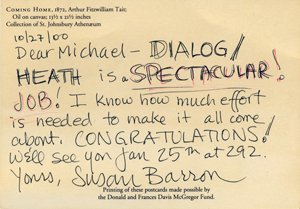 COMING HOME, 1872, Arthur Fitzwilliam Tait:
Oil on canvas; 13½ x 21½ inches
Collection of St. Johnsbury Athenæum
10/27/00
Dear Michael - DIALOG/
HEATH is a SPECTACULAR!
JOB! I know how much effort
is needed to make it all come
about. CONGRATULATIONS!
We'll see you Jan 25th at 292.
Yours, Susan Barron
Printing of these postcards made possible by
the Donald and Frances Davis McGregor Fund.